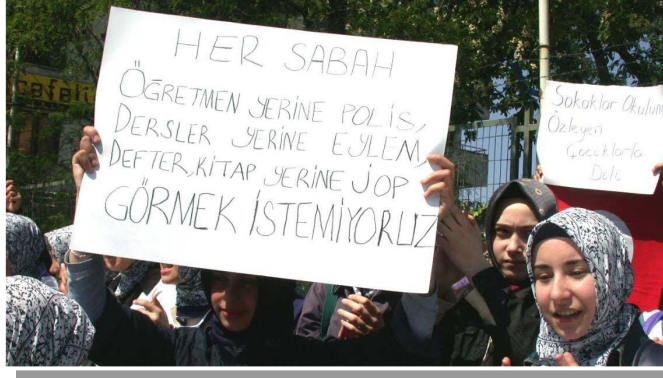 HER SABAH
ÖĞRETMEN YERİNE POLİS,
DERSLER YERİNE EYLEM,
DEFTER, KİTAP YERİNE JOP
GÖRMEK İSTEMİYORUZ
Sokaklar Okulunu
Özleyen
Çocuklarla
Dolu